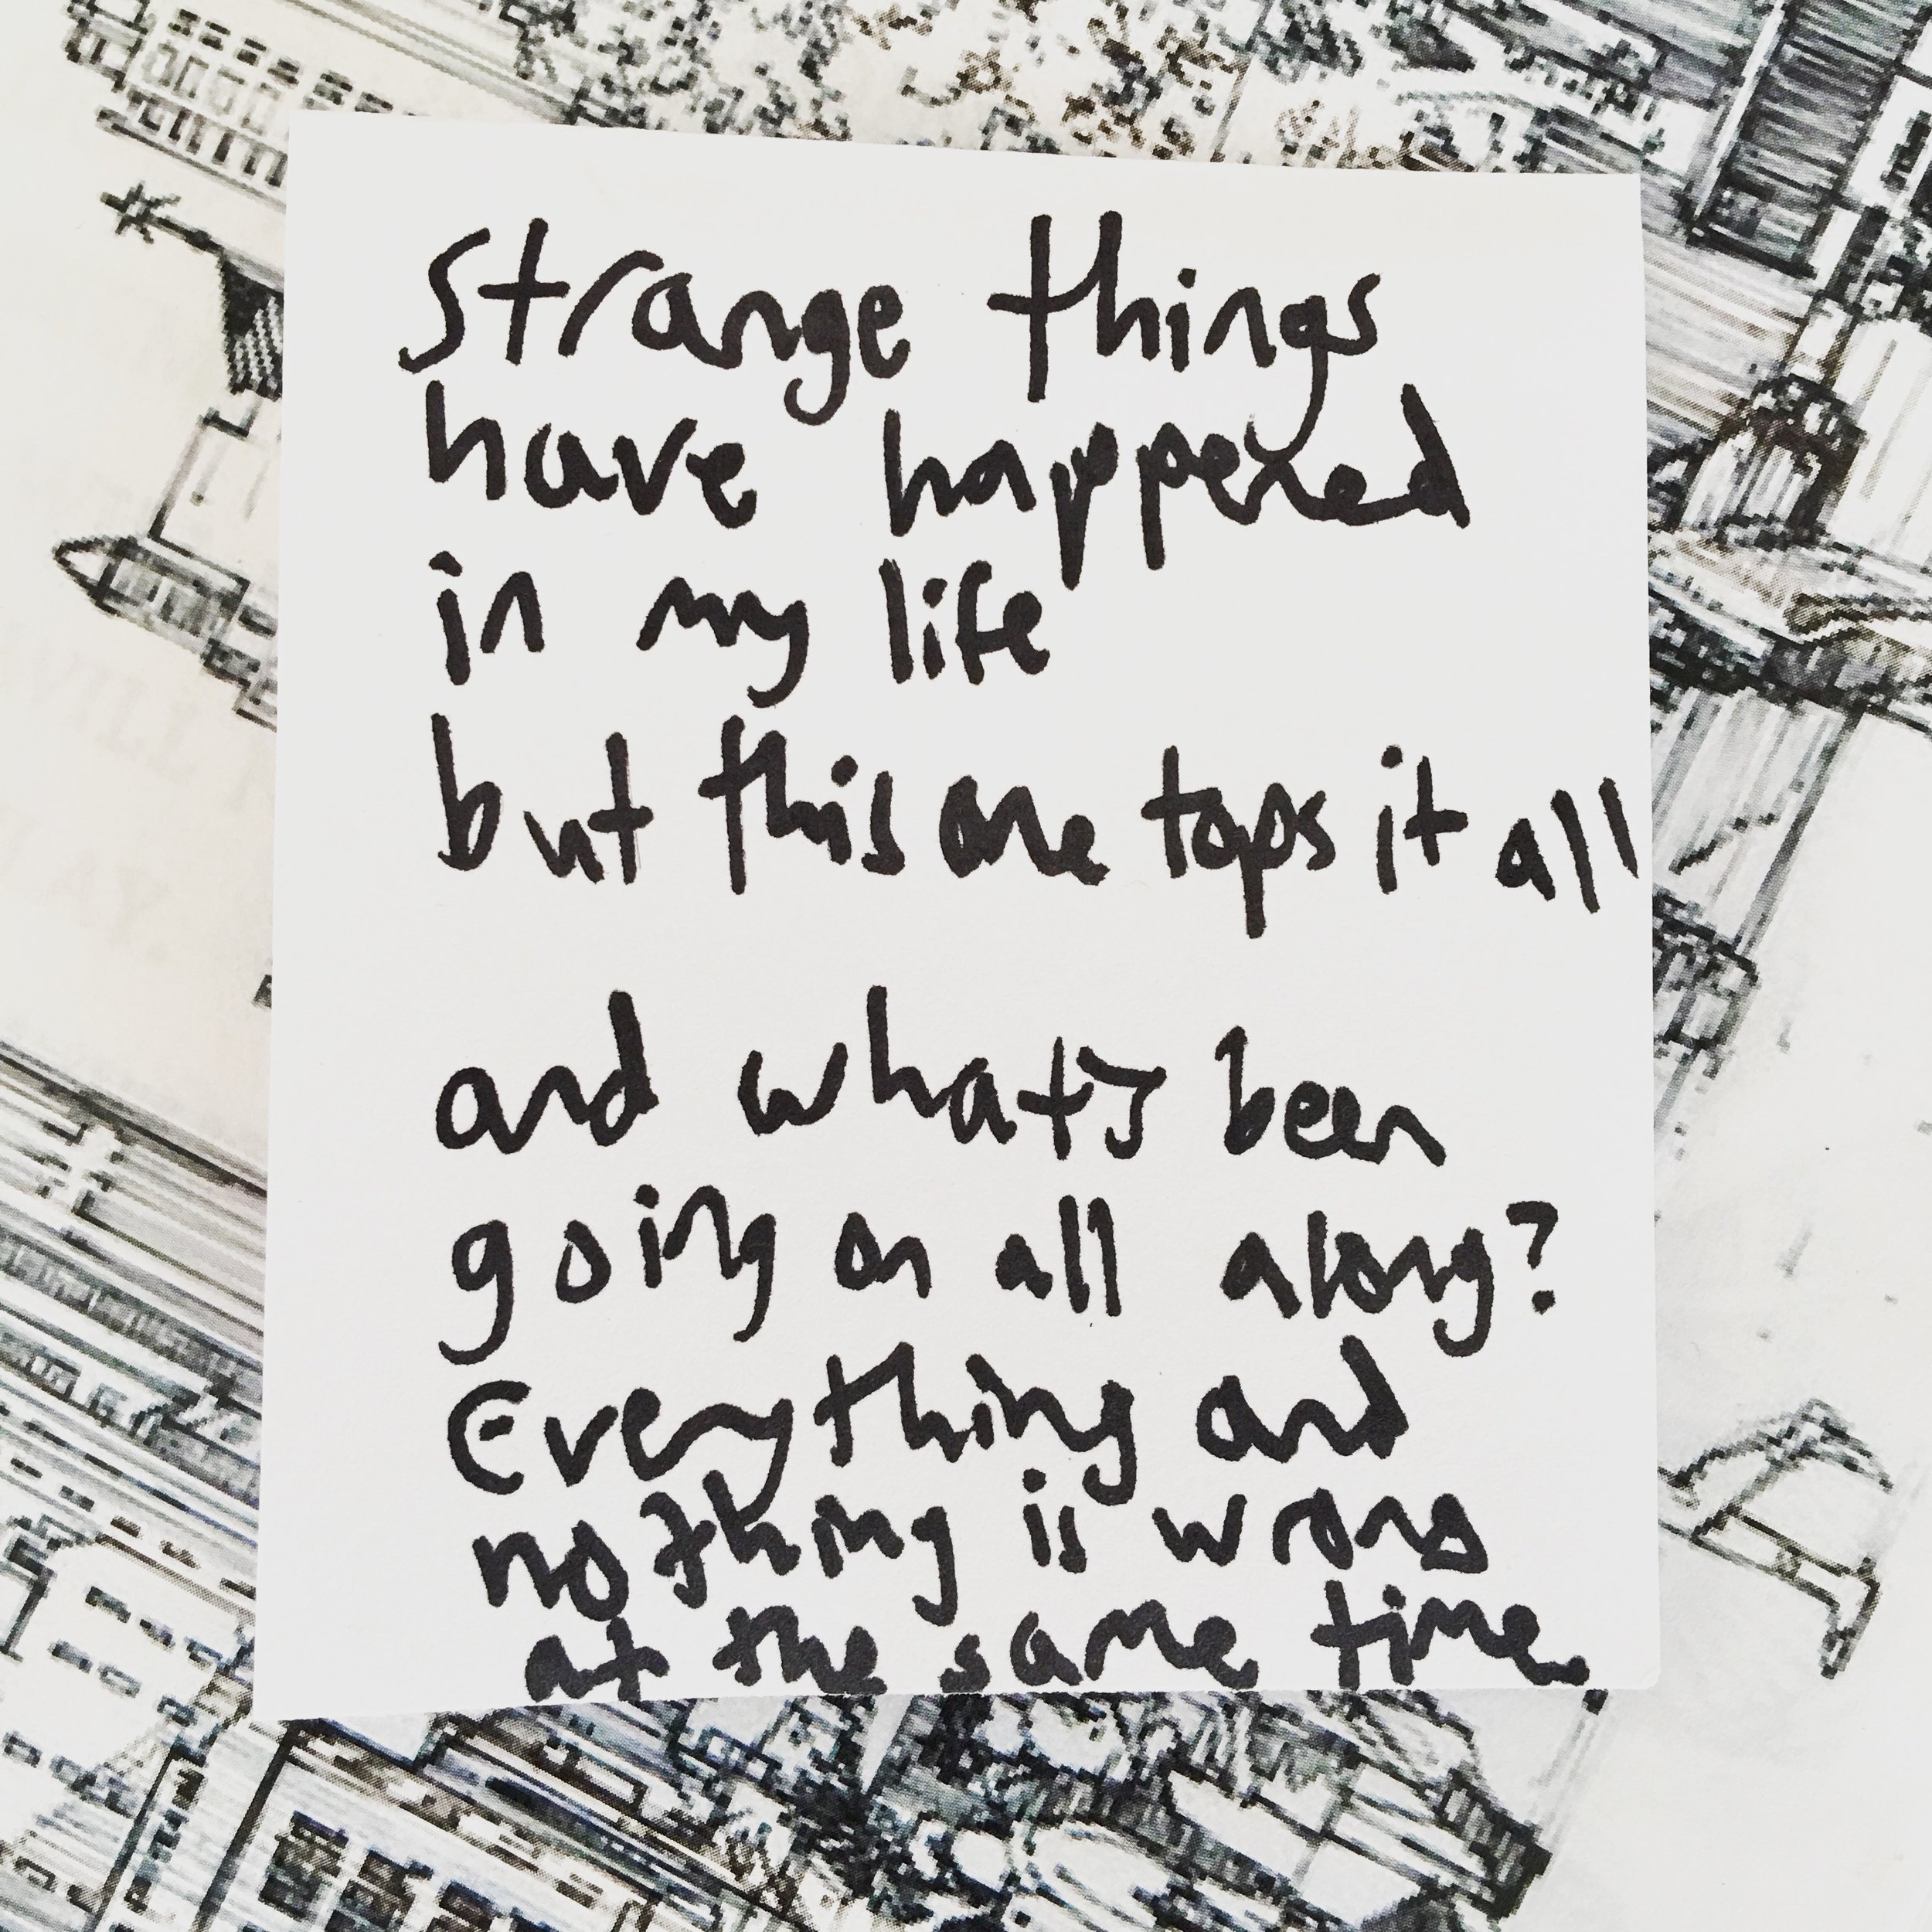 strange things
have happened
in my life
but this one tops it all
and what's been
going on all along?
Everything and
nothing is wrong
at the same time.